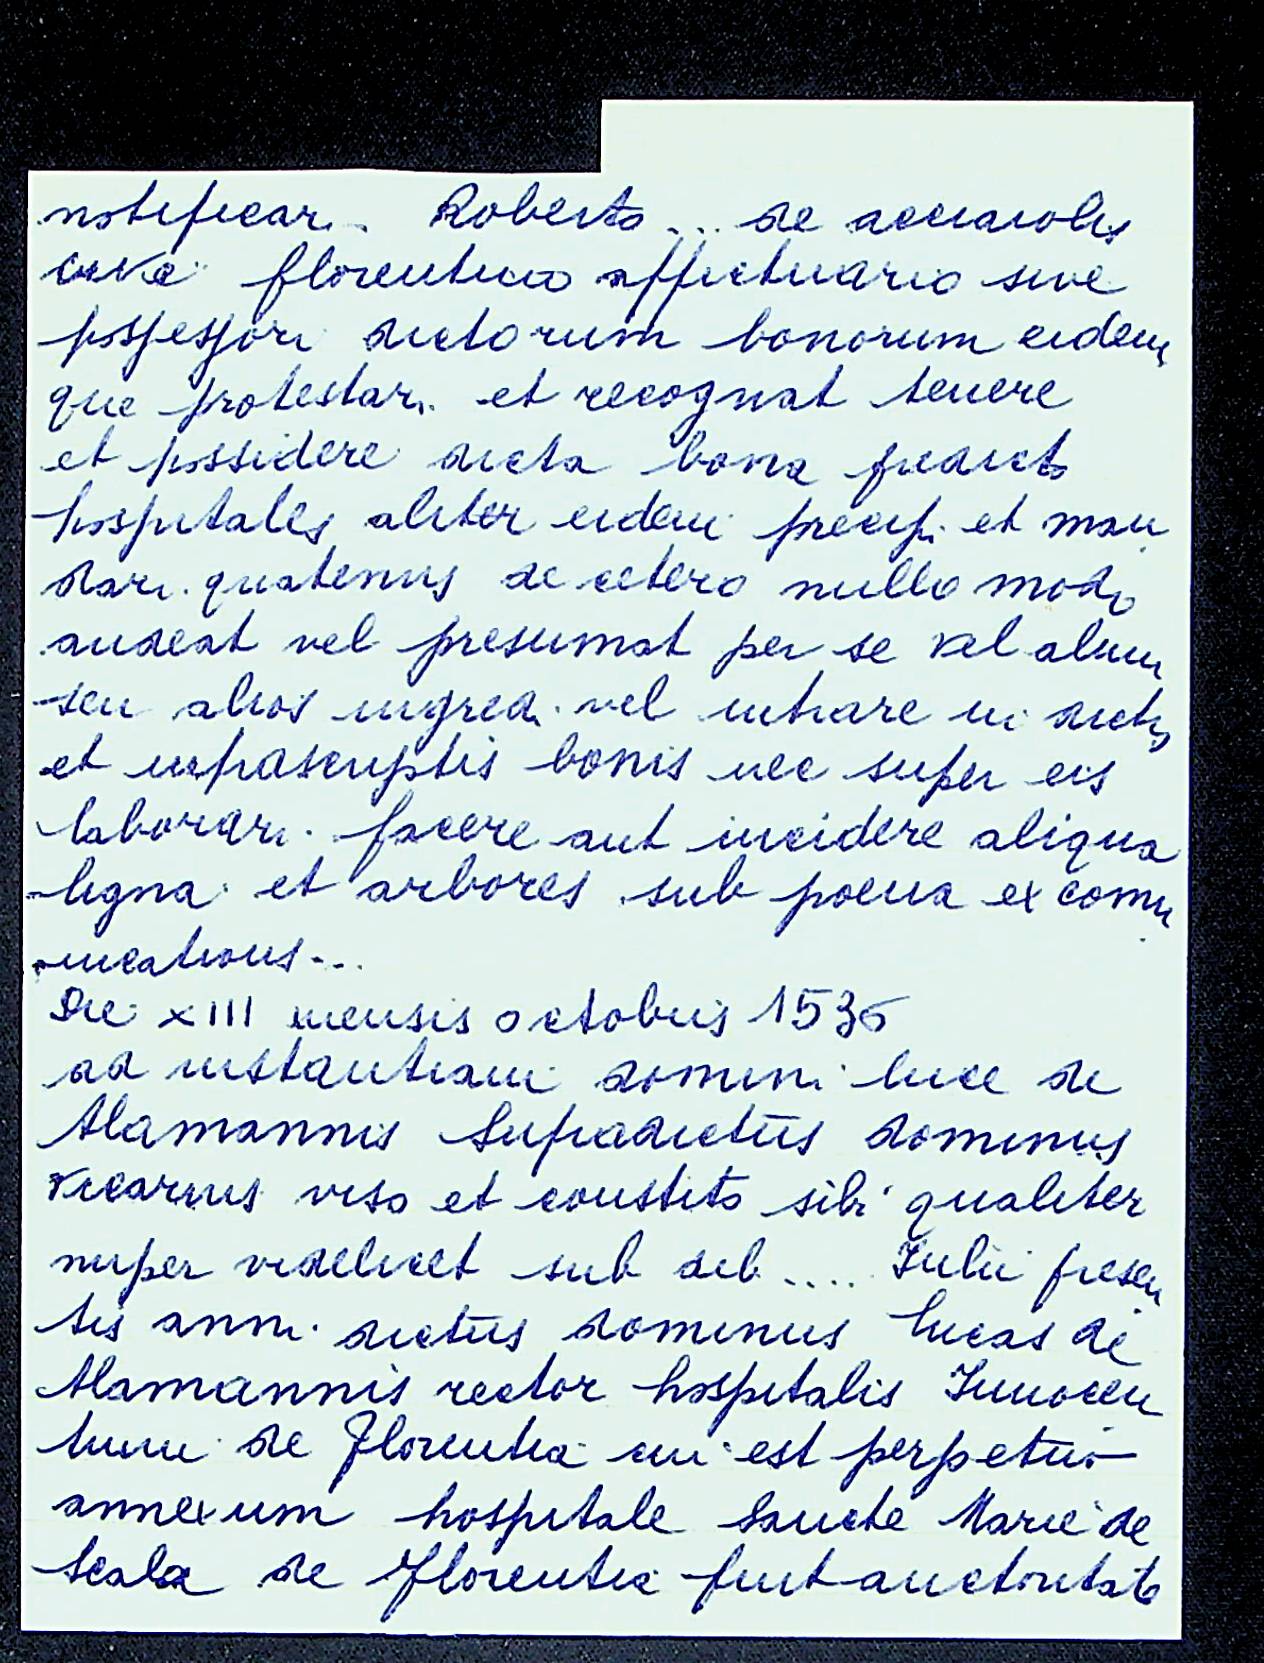 notificari Roberto ... de acciarolis
cive florentino affictuario sive
possessori dictorum bonorum eidem
que protestari. et recognat tenere
et possidere dicta bona predicto
hospitales aliter eidem precipi. et man
dari. quatenus de cetero nullo modo
audeat vel presumat per se vel alium
seu alios ingredi. vel intrare in dictis
et infrascriptis bonis nec super eis
laborari. facere aut incidere aliqua
ligna et arbores sub poena excomu
nicationis...
Die XIII mensis octobris 1536
ad instantiam domini luce de
Alamannis Supradictus dominus
vicarius viso et constito sibi qualiter
nuper videlicet sub die .... Iulii presen
tis anni. dictus dominus lucas de
Alamannis rector hospitalis Innocen
tium de Florentia cui est perpetuo
annexum hospitale Sancte Marie de
Scala de Florentia fuit auctoritate